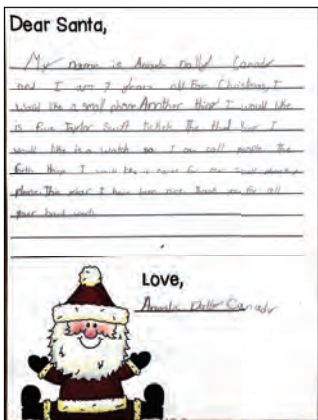 Dear Santa,
My name is
and I am 7 years old For Christmas, I
would like a small phone Another thing I would like
is five Taylor Swift tickets The third thing I
would like is a watch so I can call people The
forth thing I would like is a
please. This year I have been nice thank you for all
your hard work
Love,